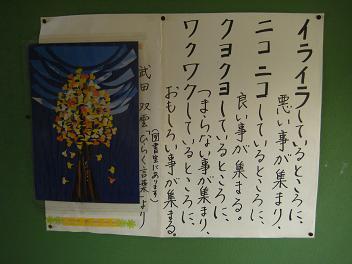 イライラしているところに、
悪い事が集まり、
ニコニコしているところに、
良い事が集まる。
クヨクヨしているところに、
つまらない事が集まり、
ワクワクしているところに、
おもしろい事が集まる。
(図書室にあります)
武田双雲「ひらく言葉」より